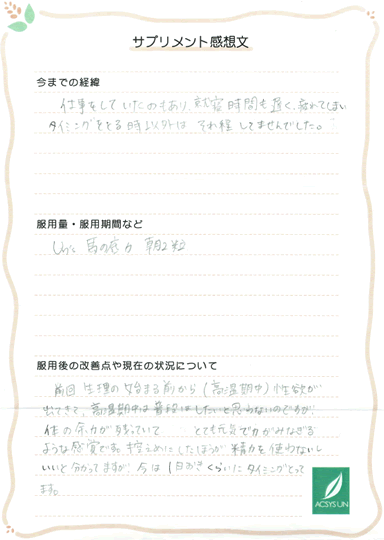 サプリメント感想文
今までの経緯
仕事をしていたのもあり、就寝時間も遅く、疲れてしまい
タイミングをとる時以外は それ程 してませんでした。
服用量・服用期間など
馬の底力 朝2粒
服用後の改善点や現在の状況について
前回 生理の始まる前から(高温期中)性欲が
出てきて、高温期中は普段はしたいと思わないのですが、
体の余力が残っていて とても元気で力がみなぎる
ような感覚です。控えめにしたほうが 精力を使わないし
いいと分かってますが、今は1日おきくらいにタイミングとって
ます。
ACSYS UN